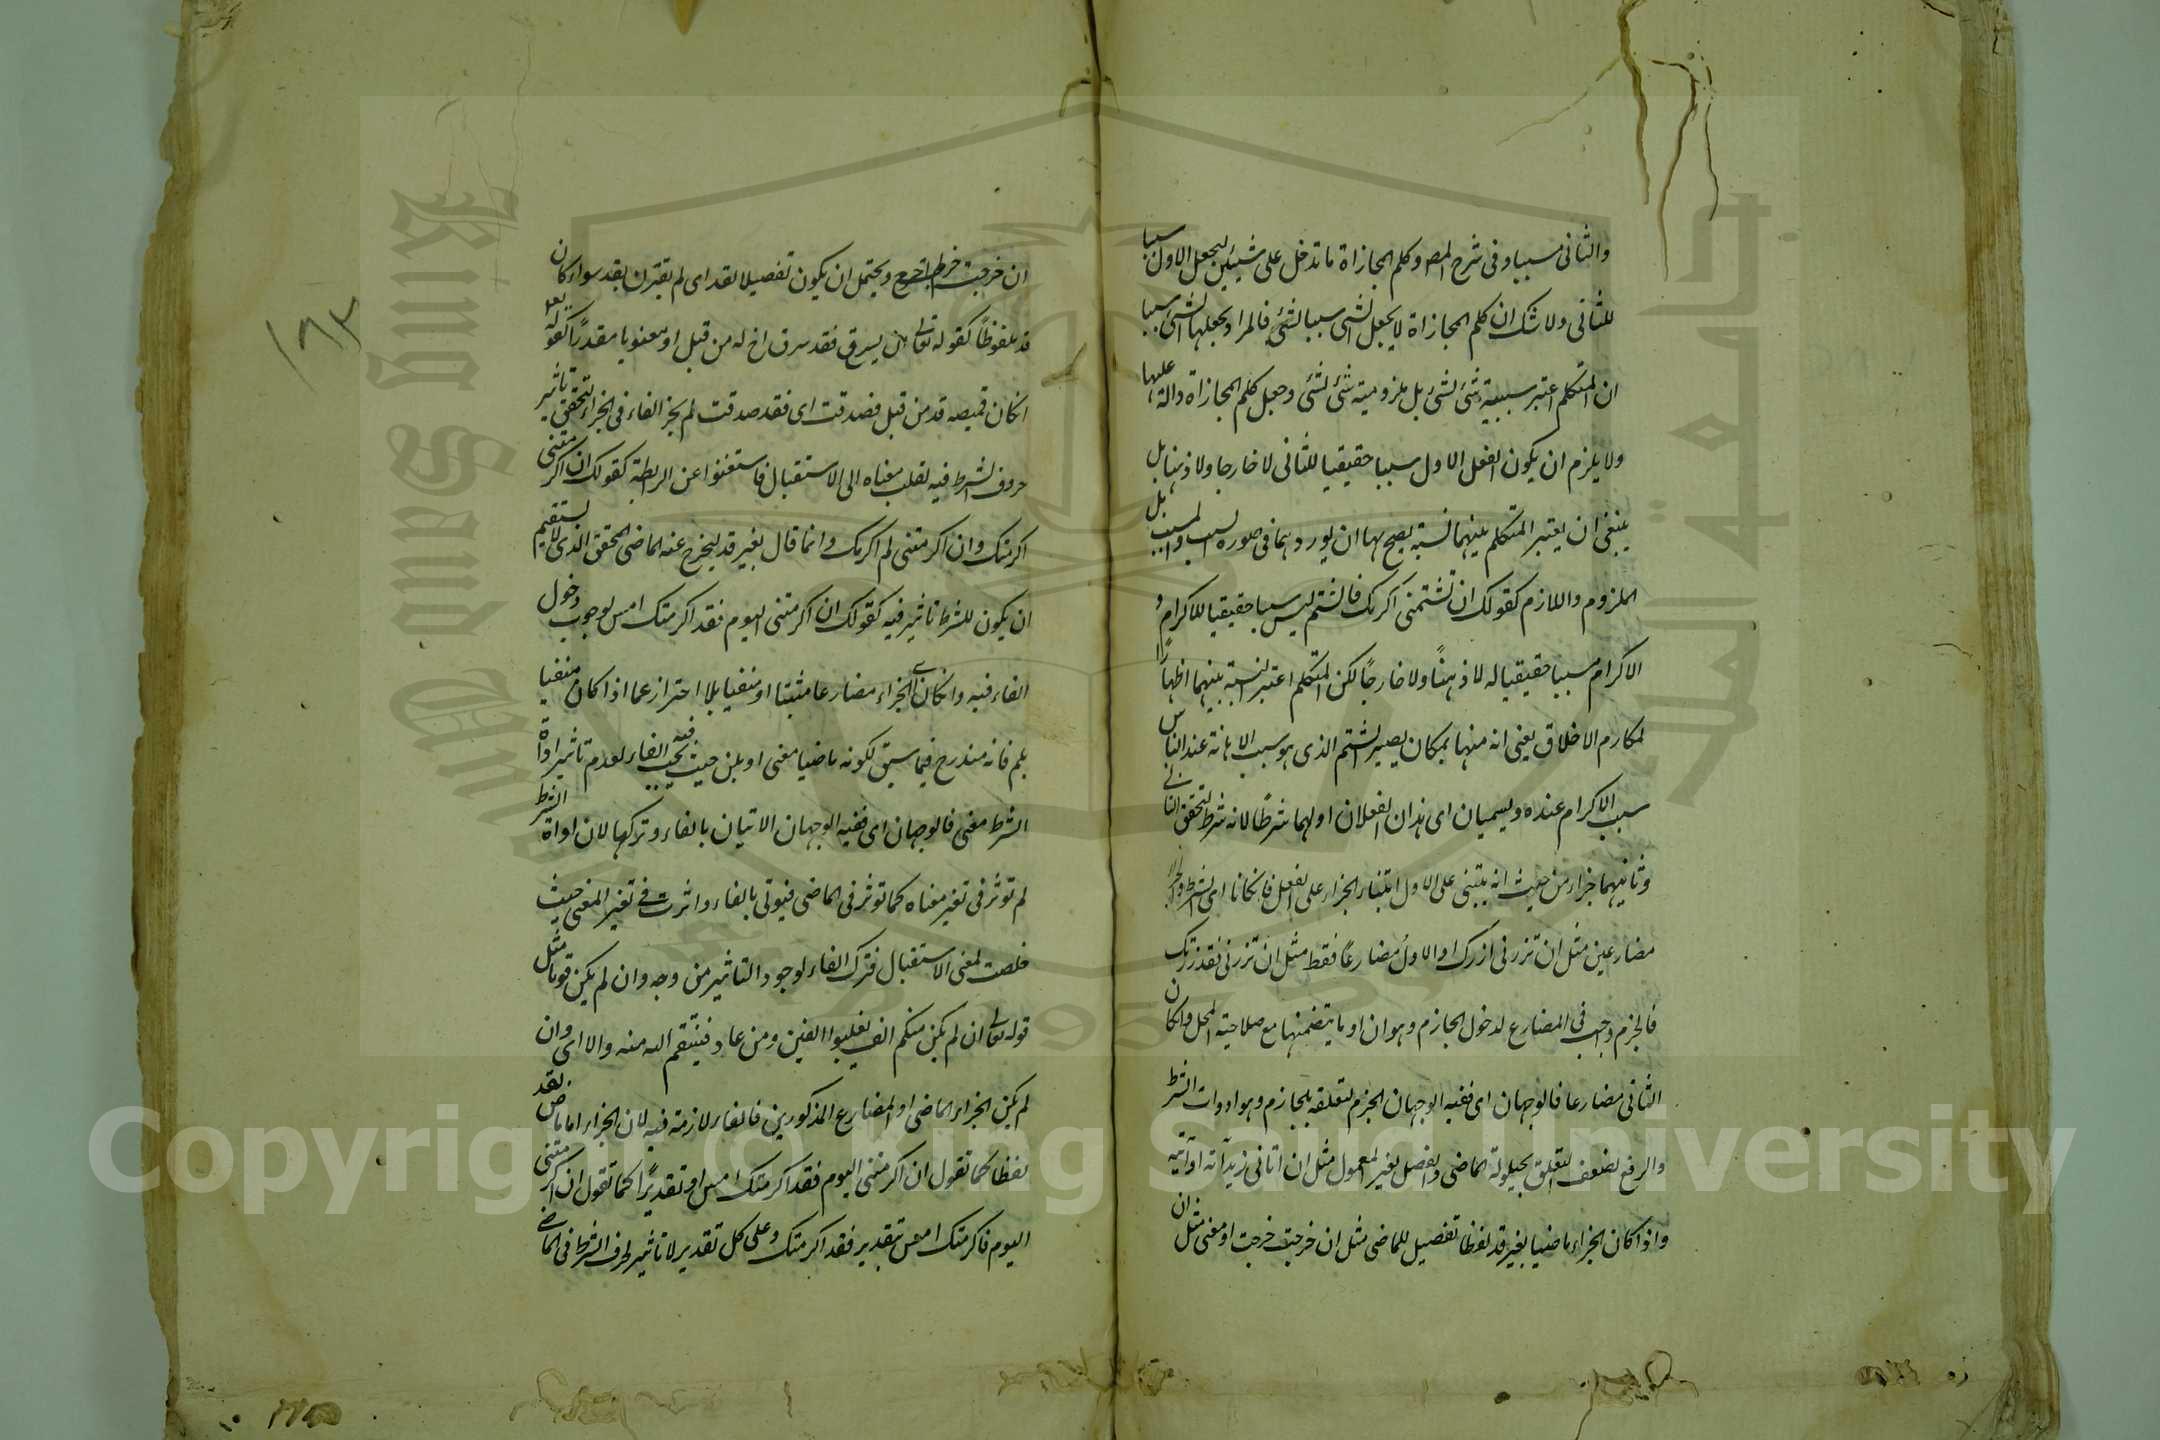 والثانى مسببا وفى شرح المص وكلم المجازاة ما تدخل على شيئين ليجعل الاول سببا
للثانى ولا شك ان كلم المجازاة لا يجعل الشئ سببا لشئ فالمراد بجعلها الشئ سببا
ان المتكلم اعتبر سببية شئ لشئ بل ملزومية شئ لشئ وجعل كلم المجازاة دالة عليها
ولا يلزم ان يكون الفعل الاول سببا حقيقيا للثانى لا خارجا ولا ذهنا بل
ينبغى ان يعتبر المتكلم بينهما نسبة يصح بها ان يورد هما فى صورة السبب والمسبب بل
الملزوم واللازم كقولك ان تشتمنى اكرمك فالشتم ليس سببا حقيقيا للاكرام و
الاكرام مسببا حقيقيا له لا ذهنًا ولا خارجًا لكن المتكلم اعتبر النسبة بينهما اظهارًا
لمكارم الاخلاق يعنى انه منها بمكان يصير الشتم الذى هو سبب الاهانة عند الناس
سبب الاكرام عنده ويسميان اى هذان الفعلان اولهما شرطًا لانه شرط لتحقق الثانى
وثانيهما جزاء من حيث انه يبتنى على الاول ابتناء الجزاء على الفعل فان كانا اى الشرط والجزاء
مضارعين مثل ان تزرنى ازرك او الاول مضارعًا فقط مثل ان تزرنى فقد زرتك
فالجزم واجب فى المضارع لدخول الجازم وهو ان او ما يتضمنها مع صلاحية المحل وان كان
الثانى مضارعا فالوجهان اى ففيه الوجهان الجزم لتعلقه بالجازم وهو ادوات الشرط
والرفع لضعف التعلق بحيلولة الماضى والفصل بغير المعمول مثل ان اتانى زيد آته او آتيه
واذا كان الجزاء ماضيا بغير قد لفظا تفصيل للماضى مثل ان خرجت خرجت او معنى مثل ان
ان خرجت لم اخرج ويحتمل ان يكون تفصيلا لقد اى لم يقترن بقد سواء كان
قد ملفوظًا كقوله تعالى ان يسرق فقد سرق اخ له من قبل او معنويا مقدرًا كقوله تعالى
ان كان قميصه قد من قبل فصدقت اى فقد صدقت لم يجز الفاء فى الجزاء لتحقق تاثير
حروف الشرط فيه لقلب معناه الى الاستقبال فاستغنوا عن الرابطة كقولك ان اكرمتنى
اكرمتك وان اكرمتنى لم اكرمك وانما قال بغير قد ليخرج عنه الماضى المحقق الذى لا يستقيم
ان يكون للشرط تاثير فيه كقولك ان اكرمتنى اليوم فقد اكرمتك امس لوجوب دخول
الفاء فيه وان كان الجزاء مضارعا مثبتا او منفيا بلا احتراز عما اذا كان منفيا
بلم فانه مندرج فيما سبق لكونه ماضيا معنى او بلن حيث يجب فيه الفاء لعدم تاثير اداة
الشرط معنى فالوجهان اى ففيه الوجهان الاتيان بالفاء وتركها لان اداة الشرط
لم توثر فى تغير معناه كما توثر فى الماضى فيوتى بالفاء واثرت فى تغير المعنى حيث
خلصت لمعنى الاستقبال فترك الفاء لوجود التاثير من وجه وان لم يكن قويا مثل
قوله تعالى ان لم يكن منكم الف يغلبوا الفين ومن عاد فينتقم الله منه والا اى وان
لم يكن الجزاء الماضى او المضارع المذكورين فالفاء لازمة فيه لان الجزاء اما ماض بقد
لفظا كما تقول ان اكرمتنى اليوم فقد اكرمتك امس او تقديرًا كما تقول ان اكرمتنى
اليوم فاكرمتك امس بتقدير فقد اكرمتك وعلى كل تقدير لا تاثير لحرف الشرط فى الماضى
١٨٣
King Saud University
جامعة الملك سعود
1957
Copyright © King Saud University